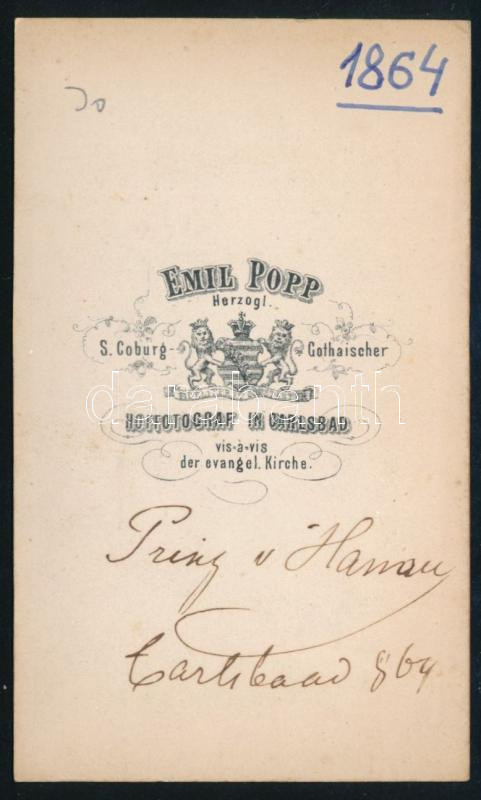 1864
Jo
EMIL POPP
Herzogl.
S. Coburg- Gothaischer
HOFFOTOGRAF IN CARLSBAD
vis-à-vis
der evangel. Kirche.
Prinz v Hanau
Carlsbaad 864
darabanth